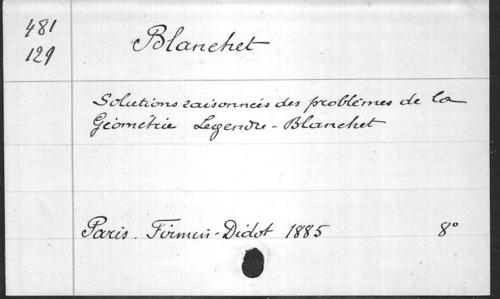 481
129
Blanchet
Solutions raisonnées des problèmes de la
Géométrie Legendre-Blanchet
Paris. Firmin-Didot 1885 8°